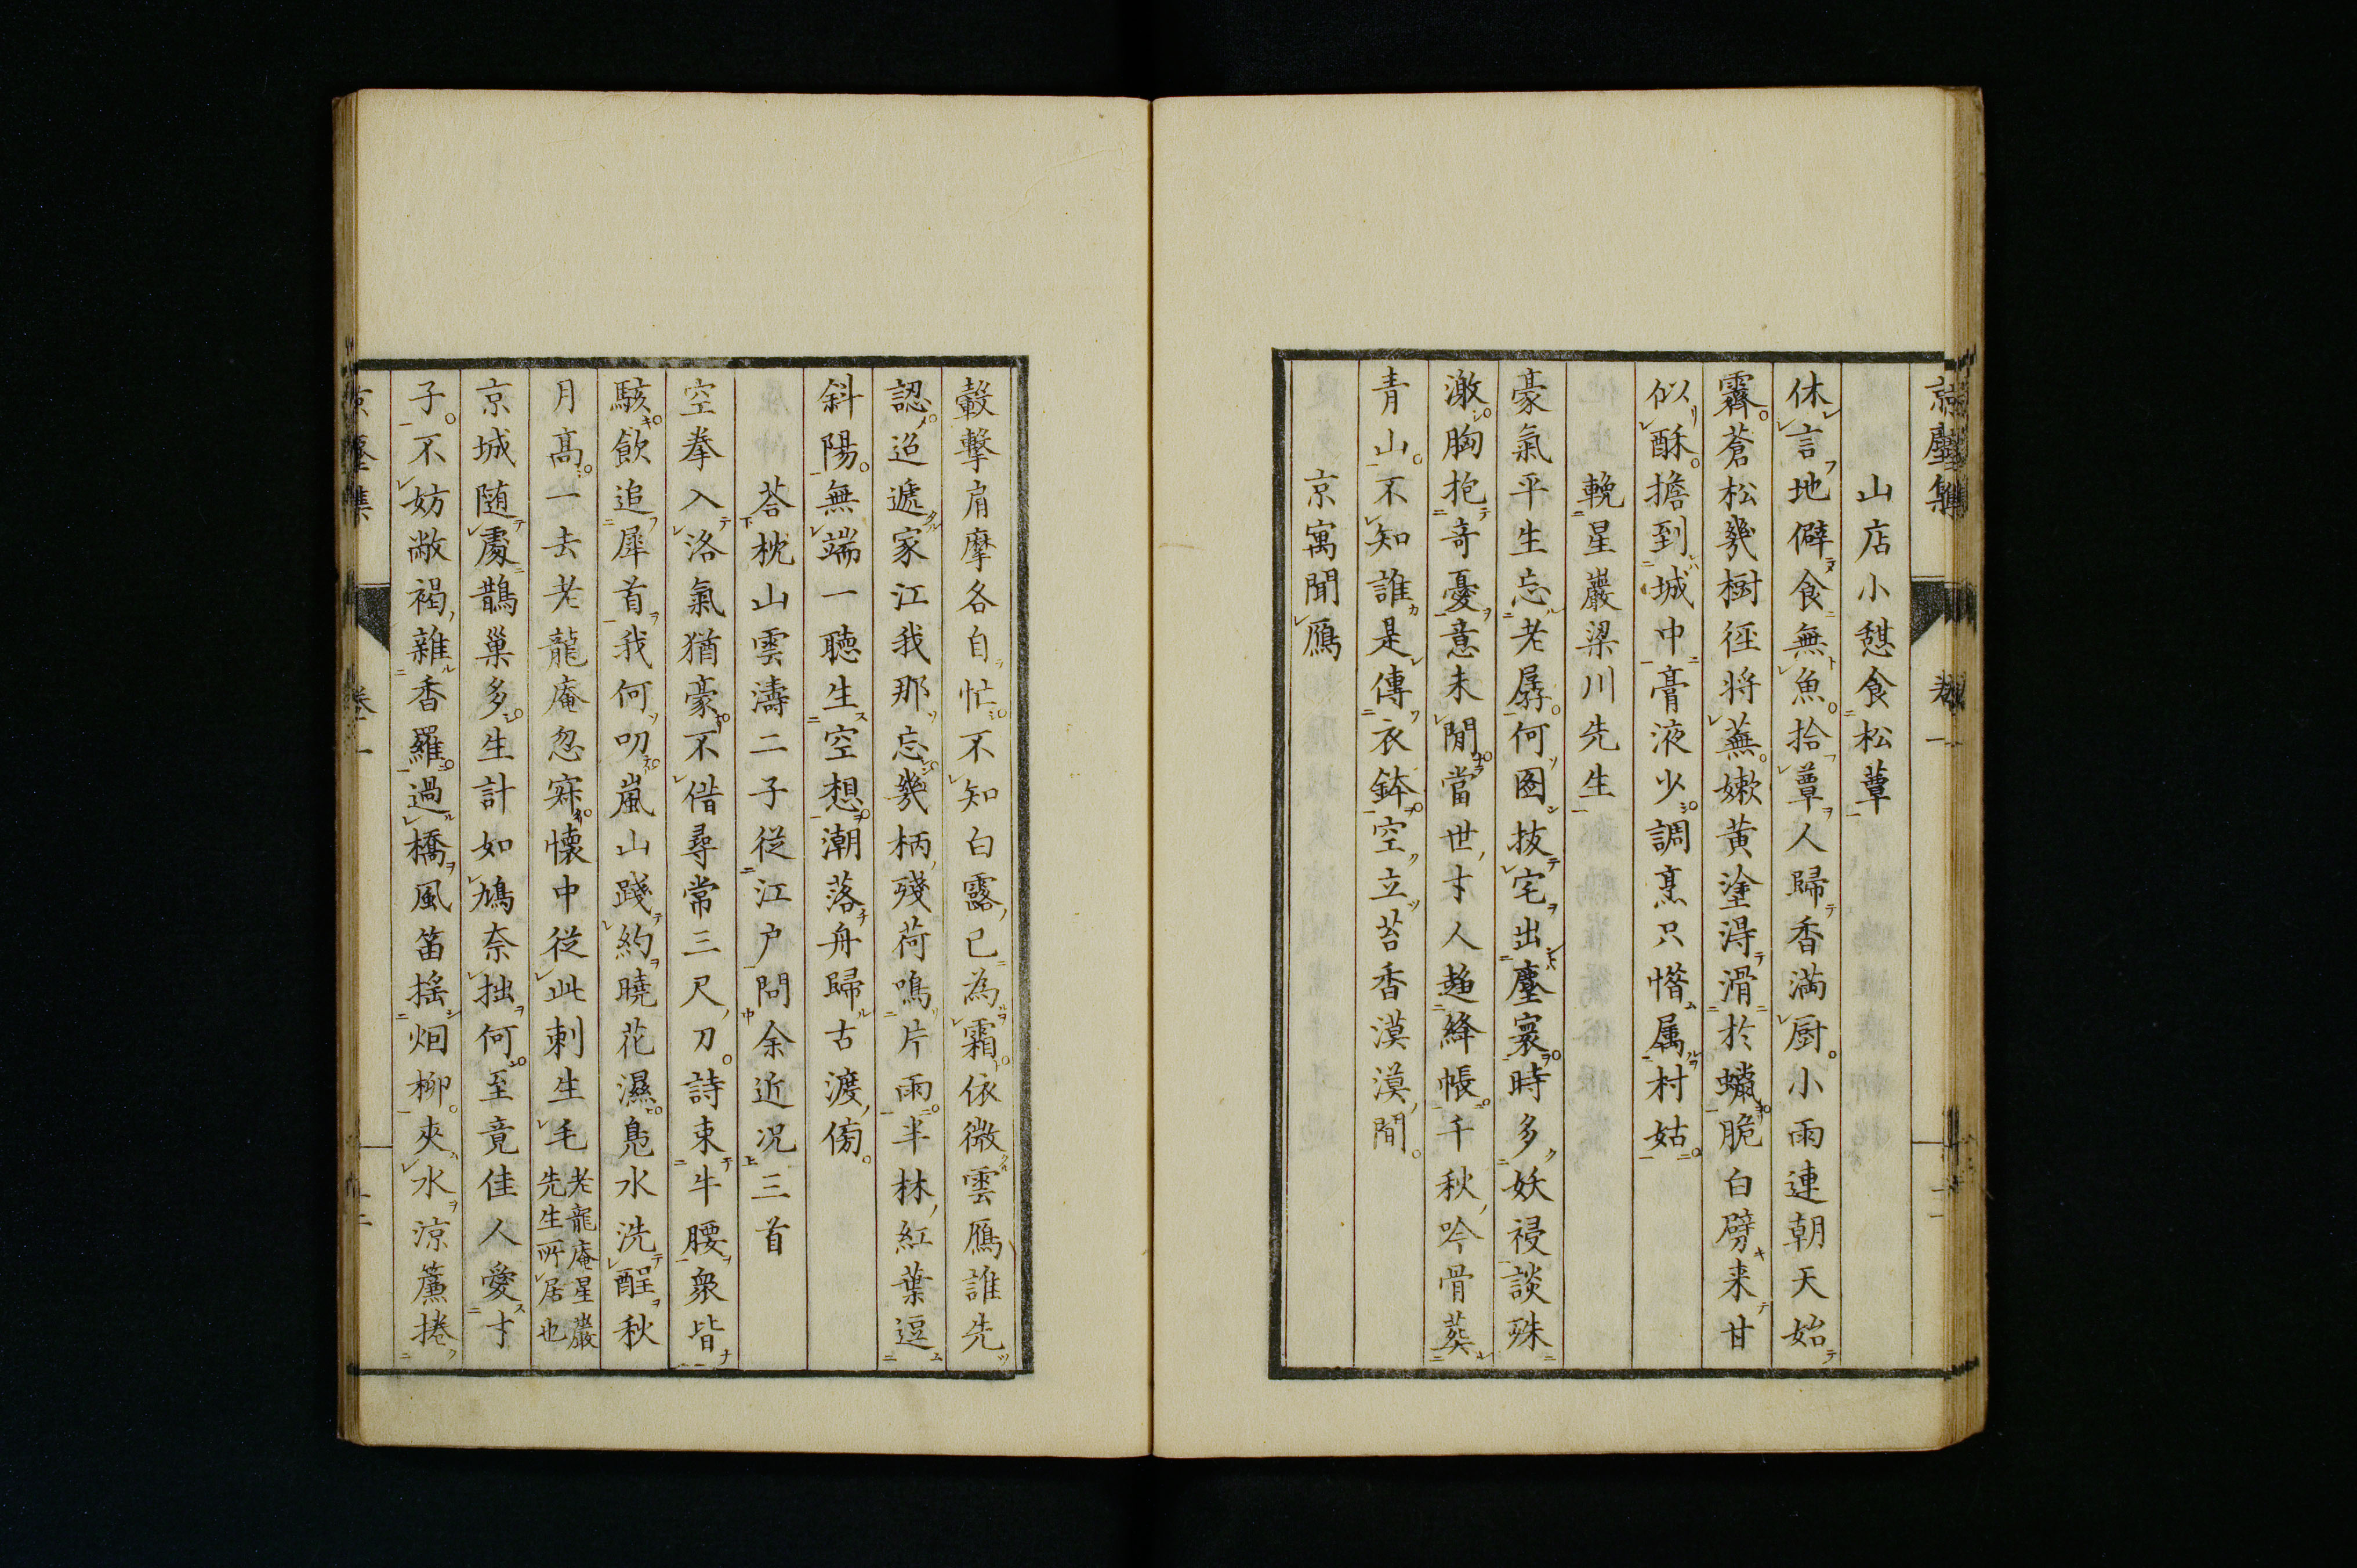 京塵集 卷一 二
山店小憩食松蕈
休言地僻食無魚拾蕈人歸香滿厨小雨連朝天始
霽蒼松幾樹徑将蕪嫩黄塗得滑於蠟脆白劈来甘
似酥擔到城中膏液少調烹只憯属村姑
輓星巖梁川先生
豪氣平生忘老孱何圖抜宅出塵寰時多妖祲談殊
激胸抱奇憂意未閒當世才人趨絳帳千秋吟骨葬
青山不知誰是傳衣鉢空立苔香漠漠間
京寓聞鴈
轂擊肩摩各自忙不知白露已為霜依微雲鴈誰先
認迢遞家江我那忘幾柄殘荷鳴片雨半林紅葉逗
斜陽無端一聴生空想潮落舟歸古渡傍
荅枕山雲濤二子従江户問余近况三首
空拳入洛氣猶豪不借尋常三尺刀詩束牛腰衆皆
駭飲追犀首我何叨嵐山踐約曉花濕鳧水洗酲秋
月髙一去老龍庵忽寐懐中従此刺生毛老龍庵星巖先生所居也
京城随處鵲巢多生計如鳩奈拙何至竟佳人愛才
子不妨敝褐雜香羅過橋風笛揺烟柳夾水涼簾捲
京塵集 卷一 二